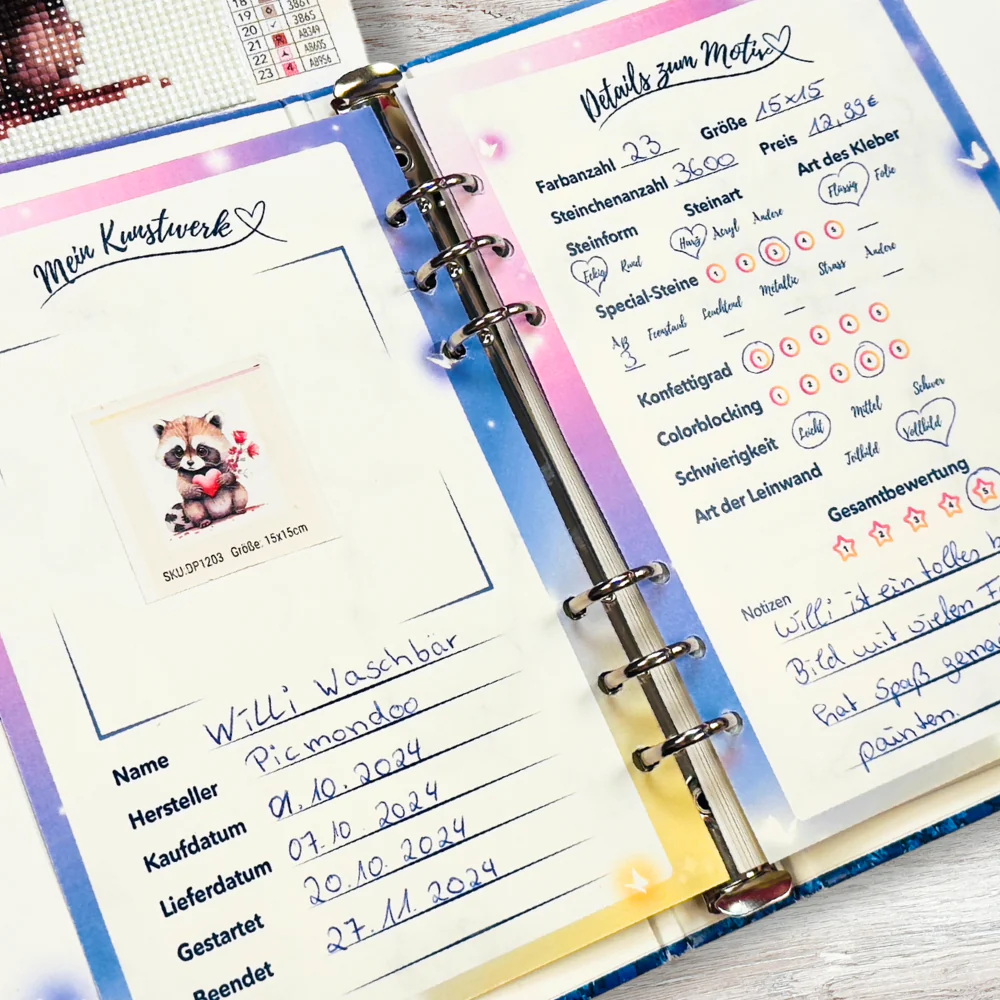 18 3861
19 3865
20
21 A8349
22 AB605
23 4 A8956
Mein Kunstwerk
SKU:DP1203 Größe: 15x15cm
Name Willi Waschbär
Hersteller Picmondoo
Kaufdatum 01.10.2024
Lieferdatum 07.10.2024
Gestartet 20.10.2024
Beendet 27.11.2024
Details zum Motiv
Farbanzahl 23 Größe 15x15
Steinchenanzahl 3600 Preis 12,99€
Steinform Steinart Art des Kleber
Eckig Rund Harz Acryl Andere Flüssig Folie
Special-Steine 1 2 3 4 5
AB Feenstaub Leuchtend Metallic Strass Andere
3
Konfettigrad 1 2 3 4 5
Colorblocking 1 2 3 4 5
Schwierigkeit Leicht Mittel Schwer
Art der Leinwand Teilbild Vollbild
Gesamtbewertung
1 2 3 4 5
Notizen Willi ist ein tolles
Bild mit vielen
hat Spaß
painten.